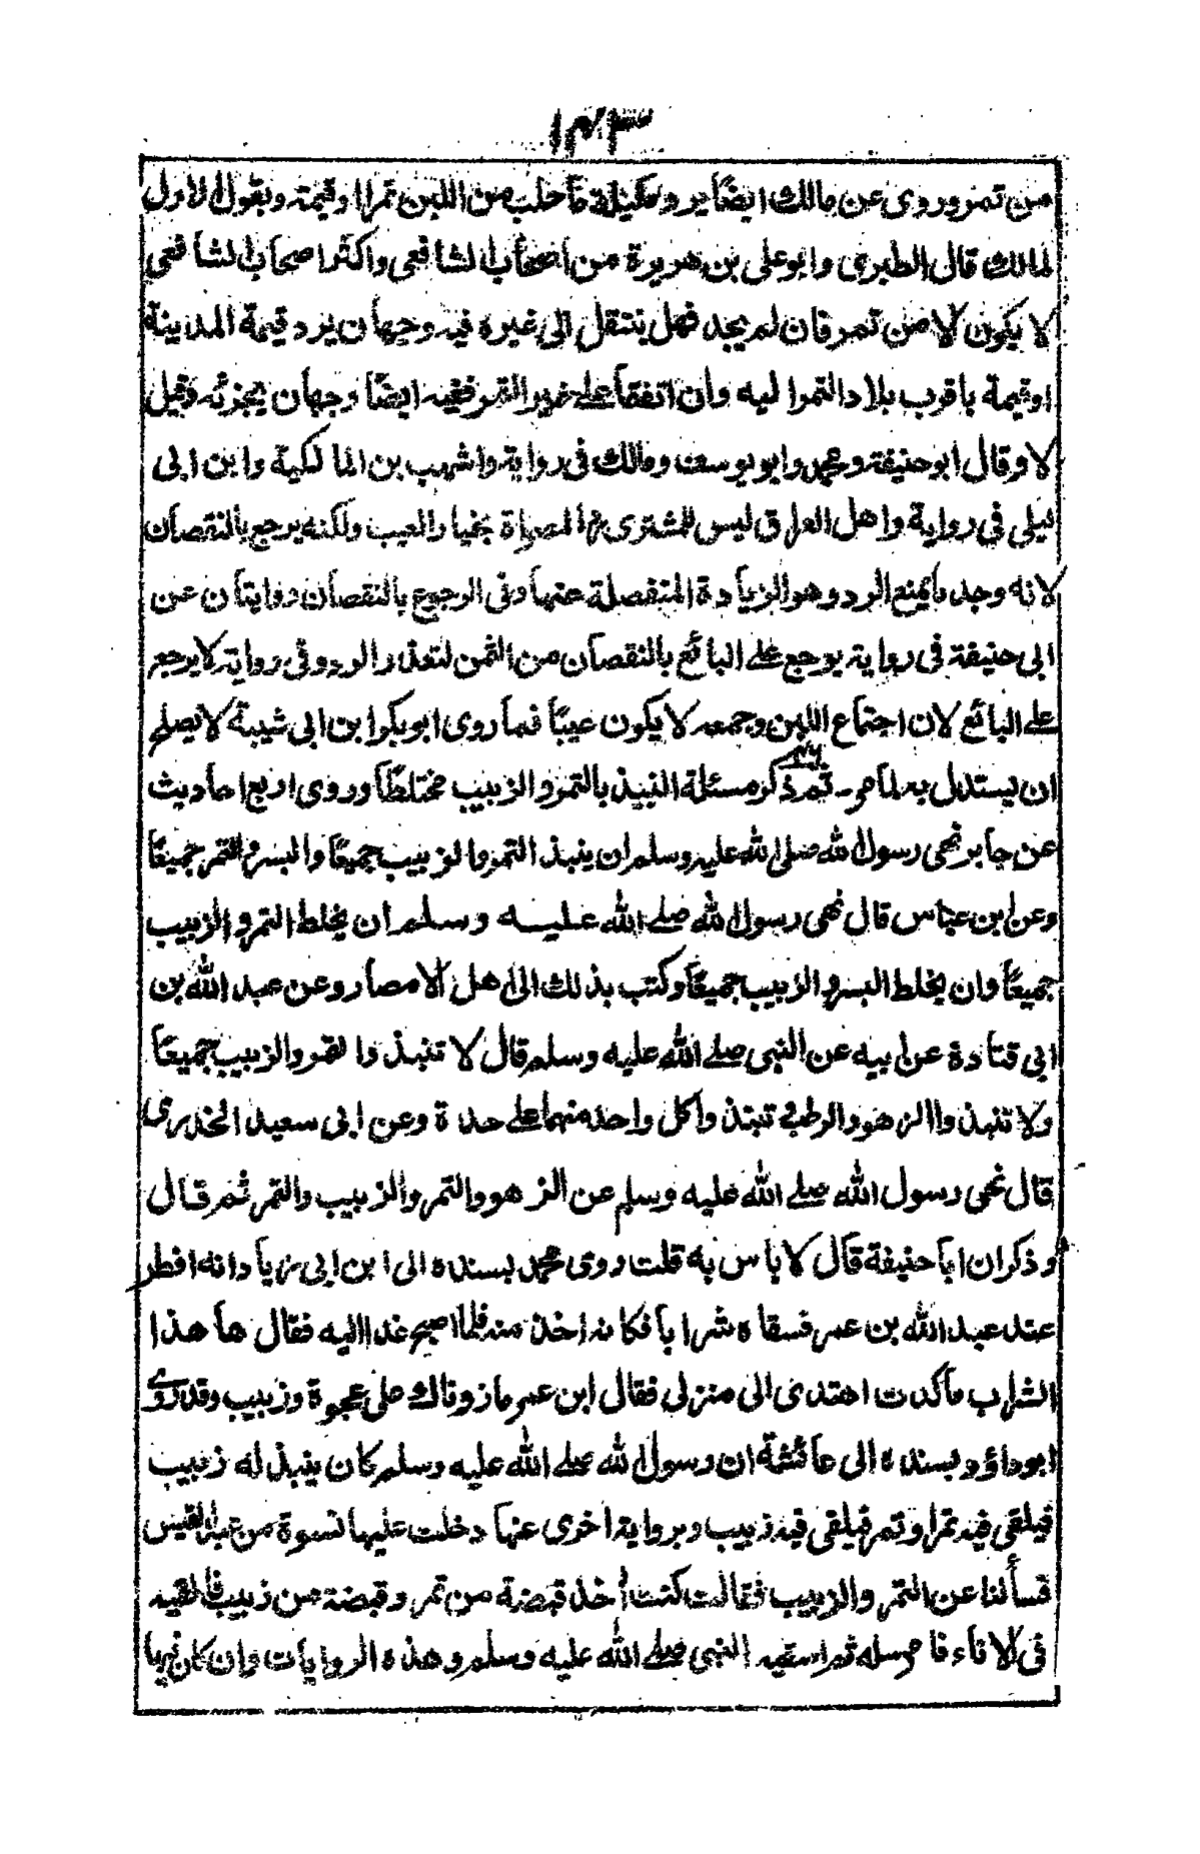 ١٤٣
من تمر وروى عن مالك ايضًا يرد مكيلة ما حلب من اللبن تمرا او قيمته وبقول الاول
لمالك قال الطبرى وابو على بن هريرة من اصحاب الشافعى واكثر اصحاب الشافعي
لا يكون الا من تمر فان لم يجد فهل ينتقل الى غيره فيه وجهان يرد قيمة المدينة
او قيمة باقرب بلاد التمر اليه وان اتفقا على غير التمر ففيه ايضًا وجهان يجزئه وقيل
لا وقال ابو حنيفة ومحمد وابو يوسف ومالك فى رواية واشهب بن المالكية وابن ابى
ليلى في رواية واهل العراق ليس للمشترى المصراة بخيار العيب ولكنه يرجع بالنقصان
لانه وجد ما يمنع الرد وهو الزيادة المنفصلة عنها وفى الرجوع بالنقصان روايتان عن
ابى حنيفة فى رواية يرجع على البائع بالنقصان من الثمن لتعذر الرد وفى رواية لا يرجع
على البائع لان اجتماع اللبن وجمعه لا يكون عيبًا فما روى ابو بكر ابن ابى شيبة لا يصلح
ان يستدل به لما مر ـ ثم ذكر مسئلة النبيذ بالتمر والزبيب مختلطًا وروى اربع احاديث
عن جابر نهى رسول الله صلى الله عليه وسلم ان ينبذ التمر والزبيب جميعًا والبسر والتمر جميعًا
وعن ابن عباس قال نهى رسول الله صلى الله عليه وسلم ان يخلط التمر والزبيب
جميعًا وان يخلط البسر والزبيب جميعًا وكتب بذلك الى اهل الامصار وعن عبد الله بن
ابى قتادة عن ابيه عن النبى صلى الله عليه وسلم قال لا تنبذوا التمر والزبيب جميعًا
ولا تنبذوا الزهو والرطب تنبذوا كل واحد منهما على حدة وعن ابى سعيد الخدرى
قال نهى رسول الله صلى الله عليه وسلم عن الزهو والتمر والزبيب والتمر ثم قال
وذكر ان ابا حنيفة قال لا باس به قلت روى محمد بسنده الى ابن ابى زياد انه افطر
عند عبد الله بن عمر فسقاه شرابا فكانه اخذ منه فلما اصبح غدا اليه فقال ما هذا
الشراب ما كدت اهتدى الى منزلى فقال ابن عمر ما زوناك على عجوة وزبيب وقد روى
ابو داؤد بسنده الى عائشة ان رسول الله صلى الله عليه وسلم كان ينبذ له زبيب
فيلقى فيه تمر او تمر فيلقى فيه زبيب وبرواية اخرى عنها دخلت عليها نسوة من عبد القيس
فسألنا عن التمر والزبيب فقالت كنت أخذ قبضة من تمر وقبضة من زبيب فالقيه
فى الاناء فامرسه ثم اسقيه النبى صلى الله عليه وسلم وهذه الروايات وان كان فيها